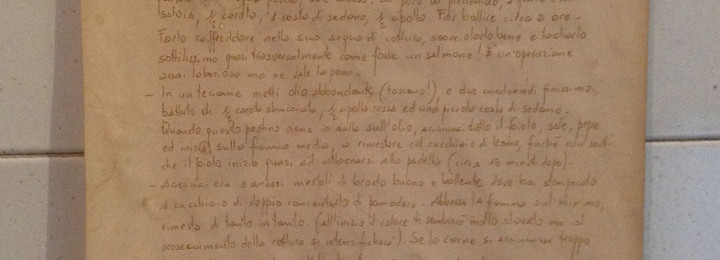 salvia, ½ carota, 1 costa di sedano, ½ cipolla. Far bollire circa 2 ore.
Farlo raffreddare nella sua acqua di cottura, scocciolarlo bene e tagliarlo
sottilissimo quasi trasversalmente come fosse un salmone! È un'operazione
assai laboriosa ma ne vale la pena.
- In un tegame metti olio abbondante (toscano!) e due cucchiai di finissimo
battuto di ½ carota sbucciata, ½ cipolla rossa ed una piccola costa di sedano.
Quando questo pestino viene a galla sull'olio, aggiungi tutto il foiolo, sale, pepe
ed inizia, sulla fiamma media, a rimestare col cucchiaio di legno, finché non vedi
che il foiolo inizia quasi ad attaccarsi alla padella (circa 15 minuti dopo) -
- Aggiungi ora 3 grossi mestoli di brodo buono e bollente dove hai stemperato
1 cucchiaio di doppio concentrato di pomodoro. Abbassa la fiamma sul minimo,
rimesta di tanto in tanto. (all'inizio il colore ti sembrerà molto slavato ma col
proseguimento della cottura si intensificherà). Se la carne si asciugasse troppo